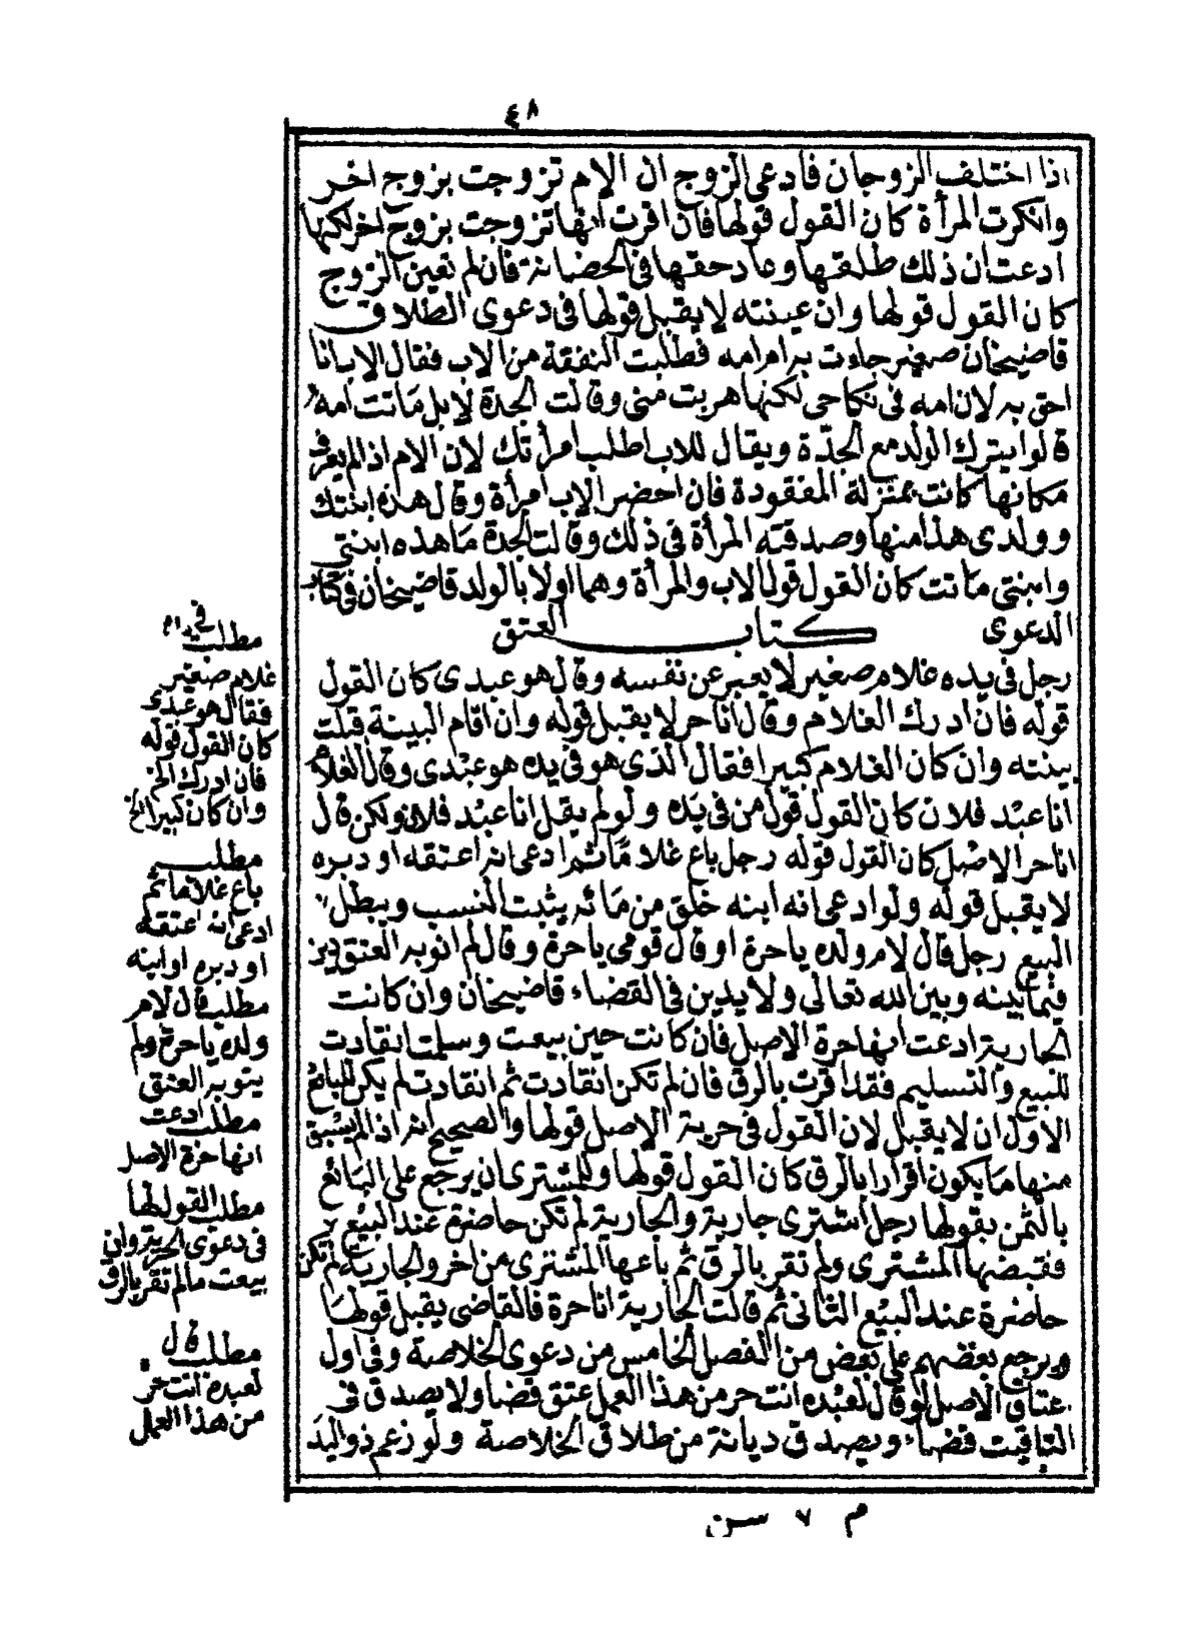 ٤٨
اذا اختلف الزوجان فادعى الزوج ان الام تزوجت بزوج اخر
وانكرت المرأة كان القول قولها فان اقرت انها تزوجت بزوج اخر لكنها
ادعت ان ذلك طلقها وعاد حقها فى الحضانة فان لم تعين الزوج
كان القول قولها وان عينته لا يقبل قولها فى دعوى الطلاق
قاضيخان صغير جاءت به ام امه فطلبت النفقة من الاب فقال الاب انا
احق به لان امه فى نكاحى لكنها هربت منى وقالت الجدة لا بل ماتت امه
قالوا يترك الولد مع الجدة ويقال للاب اطلب امرأتك لان الام اذا لم يعرف
مكانها كانت بمنزلة المفقودة فان احضر الاب امرأة وقال هذه ابنتك
وولدى هذا منها وصدقته المرأة فى ذلك وقالت الجدة ما هذه ابنتى
وابنتى ماتت كان القول قول الاب والمرأة وهما اولا بالولد قاضيخان فى كتاب
الدعوى كتاب العتق
رجل فى يده غلام صغير لا يعبر عن نفسه وقال هو عبدى كان القول
قوله فان ادرك الغلام وقال انا حر لا يقبل قوله وان اقام البينة قبلت
بينته وان كان الغلام كبيرا فقال الذى هو فى يده هو عبدى وقال الغلام
انا عبد فلان كان القول قول من فى يده ولو لم يقل انا عبد فلان ولكن قال
انا حر الاصل كان القول قوله رجل باع غلاما ثم ادعى انه اعتقه او دبره
لا يقبل قوله ولو ادعى انه ابنه خلق من مائه يثبت النسب ويبطل
البيع رجل قال لام ولده يا حرة او قال قومى يا حرة وقال لم انو به العتق دين
فيما بينه وبين الله تعالى ولا يدين فى القضاء قاضيخان وان كانت
الجارية ادعت انها حرة الاصل فان كانت حين بيعت وسلمت انقادت
للبيع والتسليم فقد اقرت بالرق فان لم تكن انقادت ثم انقادت لم يكن للبائع
الاول ان لا يقبل لان القول فى حرية الاصل قولها والصحيح انه اذا لم يسبق
منها ما يكون اقرارا بالرق كان القول قولها وللمشترى ان يرجع على البائع
بالثمن بقولها رجل اشترى جارية والجارية لم تكن حاضرة عند البيع
فقبضها المشترى ولم تقر بالرق ثم باعها المشترى من اخر والجارية لم تكن
حاضرة عند البيع الثانى ثم قالت الجارية انا حرة فالقاضى يقبل قولها
ويرجع بعضهم على بعض من الفصل الخامس من دعوى الخلاصة وفى اول
عتاق الاصل لو قال لعبده انت حر من هذا العمل عتق قضا ولا يصدق فى
التاقيت قضاء ويصدق ديانة من طلاق الخلاصة ولو زعم ذو اليد
مطلب فى يده
غلام صغير
فقال هو عبدى
كان القول قوله
فان ادرك الخ
وان كان كبيرا الخ
مطلب
باع غلاما ثم
ادعى انه اعتقه
او دبره او ابنه
مطلب قال لام
ولده يا حرة ولم
ينو به العتق
مطلب ادعت
انها حرة الاصل
مطلب القول لها
فى دعوى الحرية وان
بيعت ما لم تقر بالرق
مطلب قال
لعبده انت حر
من هذا العمل
م ٧ سن